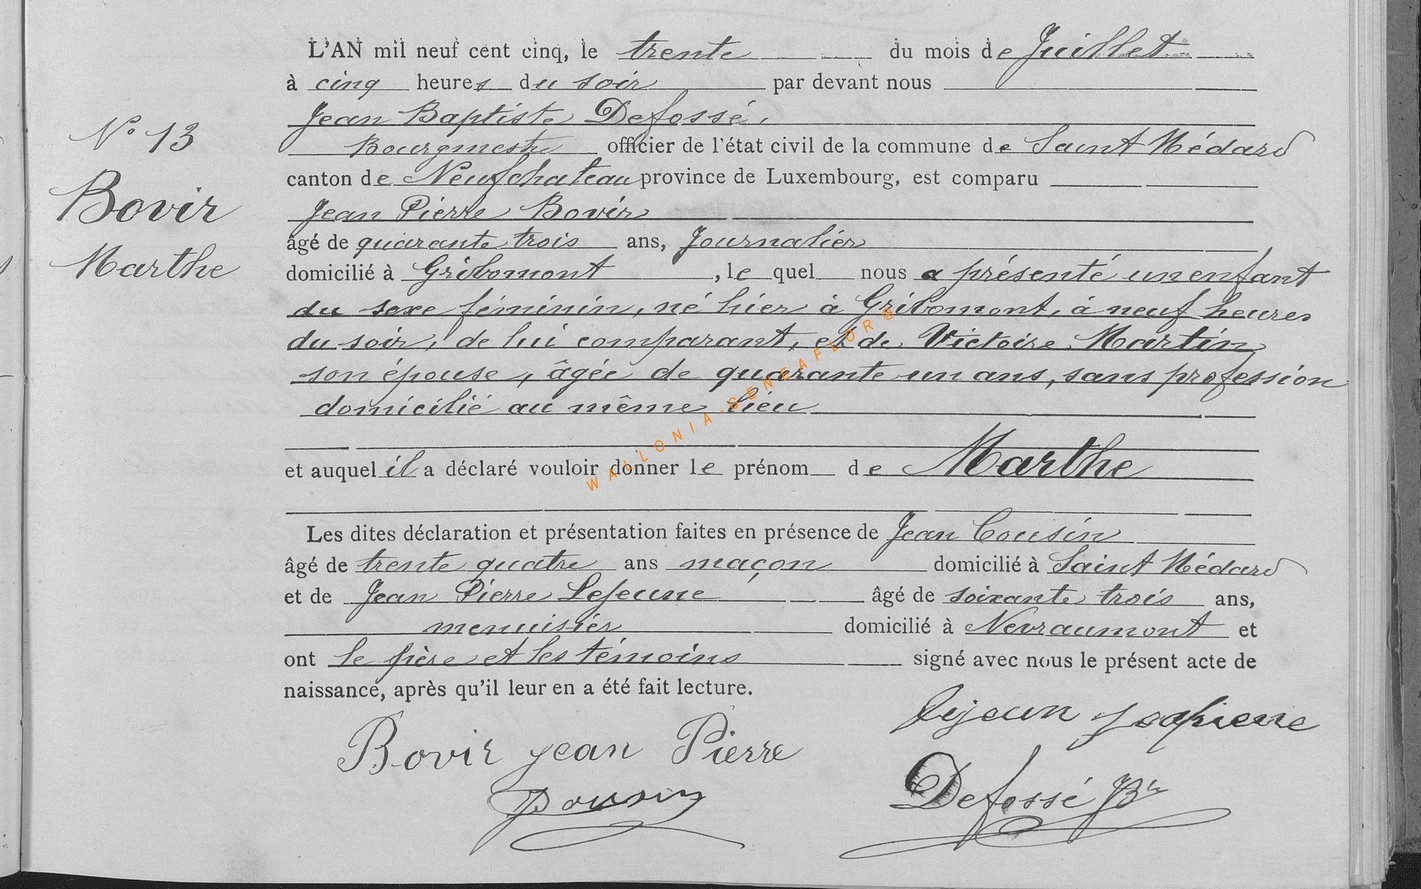 L'AN mil neuf cent cinq, le trente du mois de Juillet
à cinq heures du soir par devant nous
Jean Baptiste Defossé,
Bourgmestre officier de l'état civil de la commune de Saint Médard
canton de Neufchateau province de Luxembourg, est comparu
Jean Pierre Bovir
âgé de quarante trois ans, Journalier
domicilié à Gribomont, le quel nous a présenté un enfant
du sexe féminin, né hier à Gribomont, à neuf heures
du soir, de lui comparant, et de Victoire Martin
son épouse, âgée de quarante un ans, sans profession
domicilié au même lieu
et auquel il a déclaré vouloir donner le prénom de Marthe
Les dites déclaration et présentation faites en présence de Jean Cousin
âgé de trente quatre ans maçon domicilié à Saint Médard
et de Jean Pierre Lejeune âgé de soixante trois ans,
menuisier domicilié à Nevraumont et
ont le père et les témoins signé avec nous le présent acte de
naissance, après qu'il leur en a été fait lecture.
N° 13
Bovir
Marthe
Bovir jean Pierre
Defossé Bte
WALLONIA-GENEAFLORE